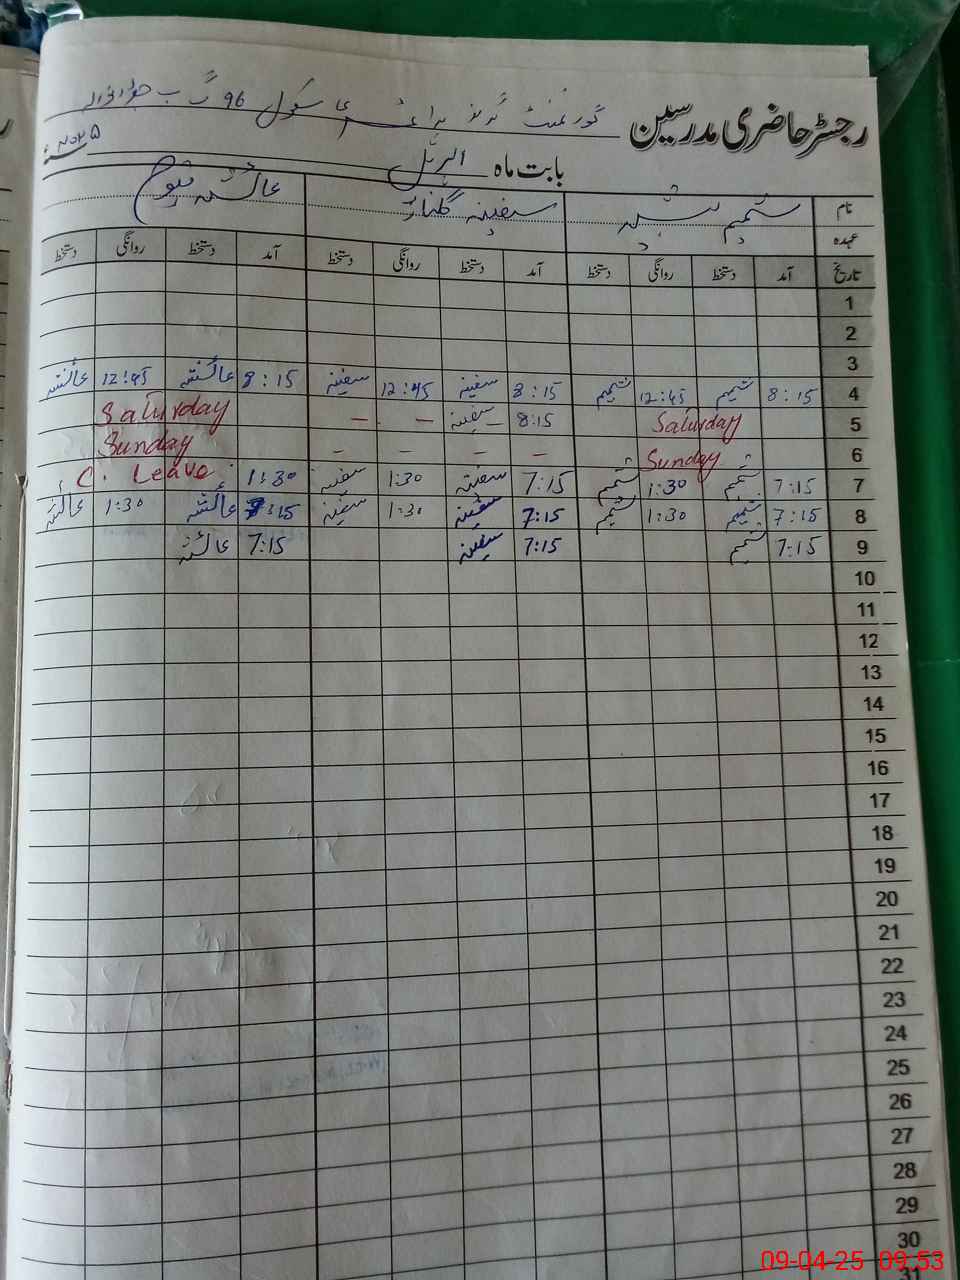 رجسٹر حاضری مدرسین گورنمنٹ گرلز پرائمری سکول 96 گ ب جڑانوالہ
بابت ماہ اپریل ۲۰۲۵ء
نام شمیم سفینہ گلنار عائشہ
عہدہ
تاریخ آمد دستخط روانگی دستخط آمد دستخط روانگی دستخط آمد دستخط روانگی دستخط
1
2
3
4 8:15 شمیم 12:45 شمیم 8:15 سفینہ 12:45 سفینہ 8:15 عائشہ 12:45 عائشہ
5 Saturday 8:15 سفینہ - - Saturday
6 Sunday - - - - Sunday
7 7:15 شمیم 1:30 شمیم 7:15 سفینہ 1:30 سفینہ 1:30 C. Leave
8 7:15 شمیم 1:30 شمیم 7:15 سفینہ 1:30 سفینہ 7:15 عائشہ 1:30 عائشہ
9 7:15 شمیم 7:15 سفینہ 7:15 عائشہ
10
11
12
13
14
15
16
17
18
19
20
21
22
23
24
25
26
27
28
29
30
31
09-04-25 09:53